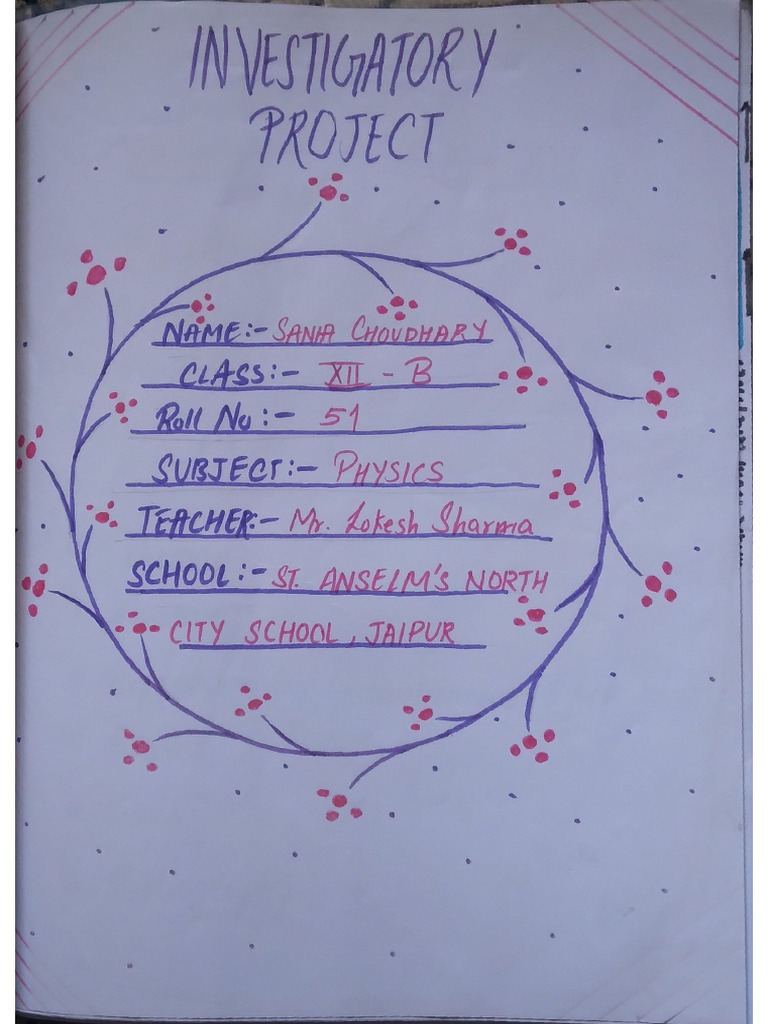 INVESTIGATORY
PROJECT
NAME:- SANIA CHOUDHARY
CLASS:- XII - B
Roll No:- 51
SUBJECT:- PHYSICS
TEACHER:- Mr. Lokesh Sharma
SCHOOL:- ST. ANSELM'S NORTH
CITY SCHOOL, JAIPUR